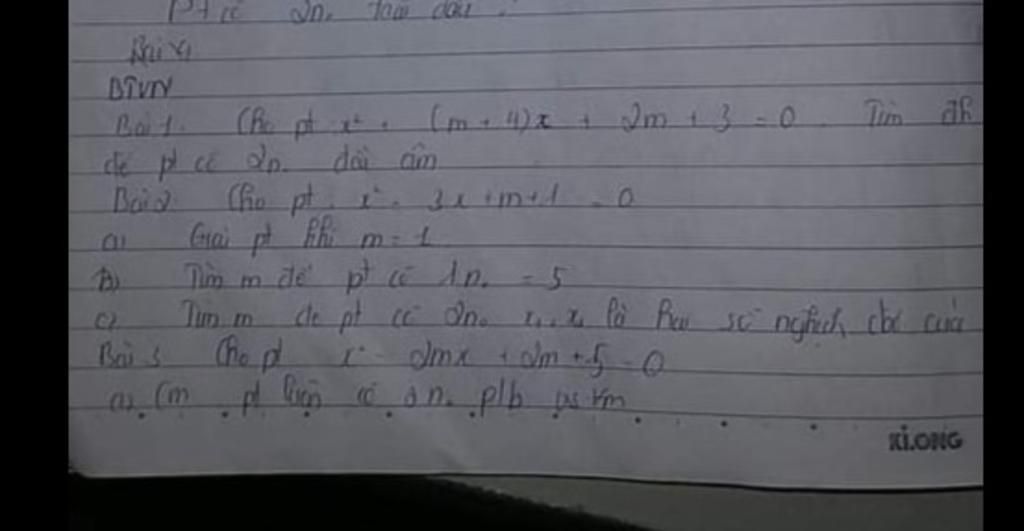 Pt có 2n. trái dấu.
Bài 4
BTVN
Bài 1. Cho pt x² + (m + 4)x + 2m + 3 = 0. Tìm đk
để pt có 2n. âm
Bài 2 Cho pt. x² - 3x + m + 1 = 0
a) Giải pt khi m = 1
b) Tìm m để pt có 1n. = 5
c) Tìm m để pt có 2n. x₁, x₂ là hai số nghịch của
Bài 3 Cho pt x² - 2mx + 2m + 5 = 0
a) Cm pt luôn có 2n. p/b ∀m
KLONG